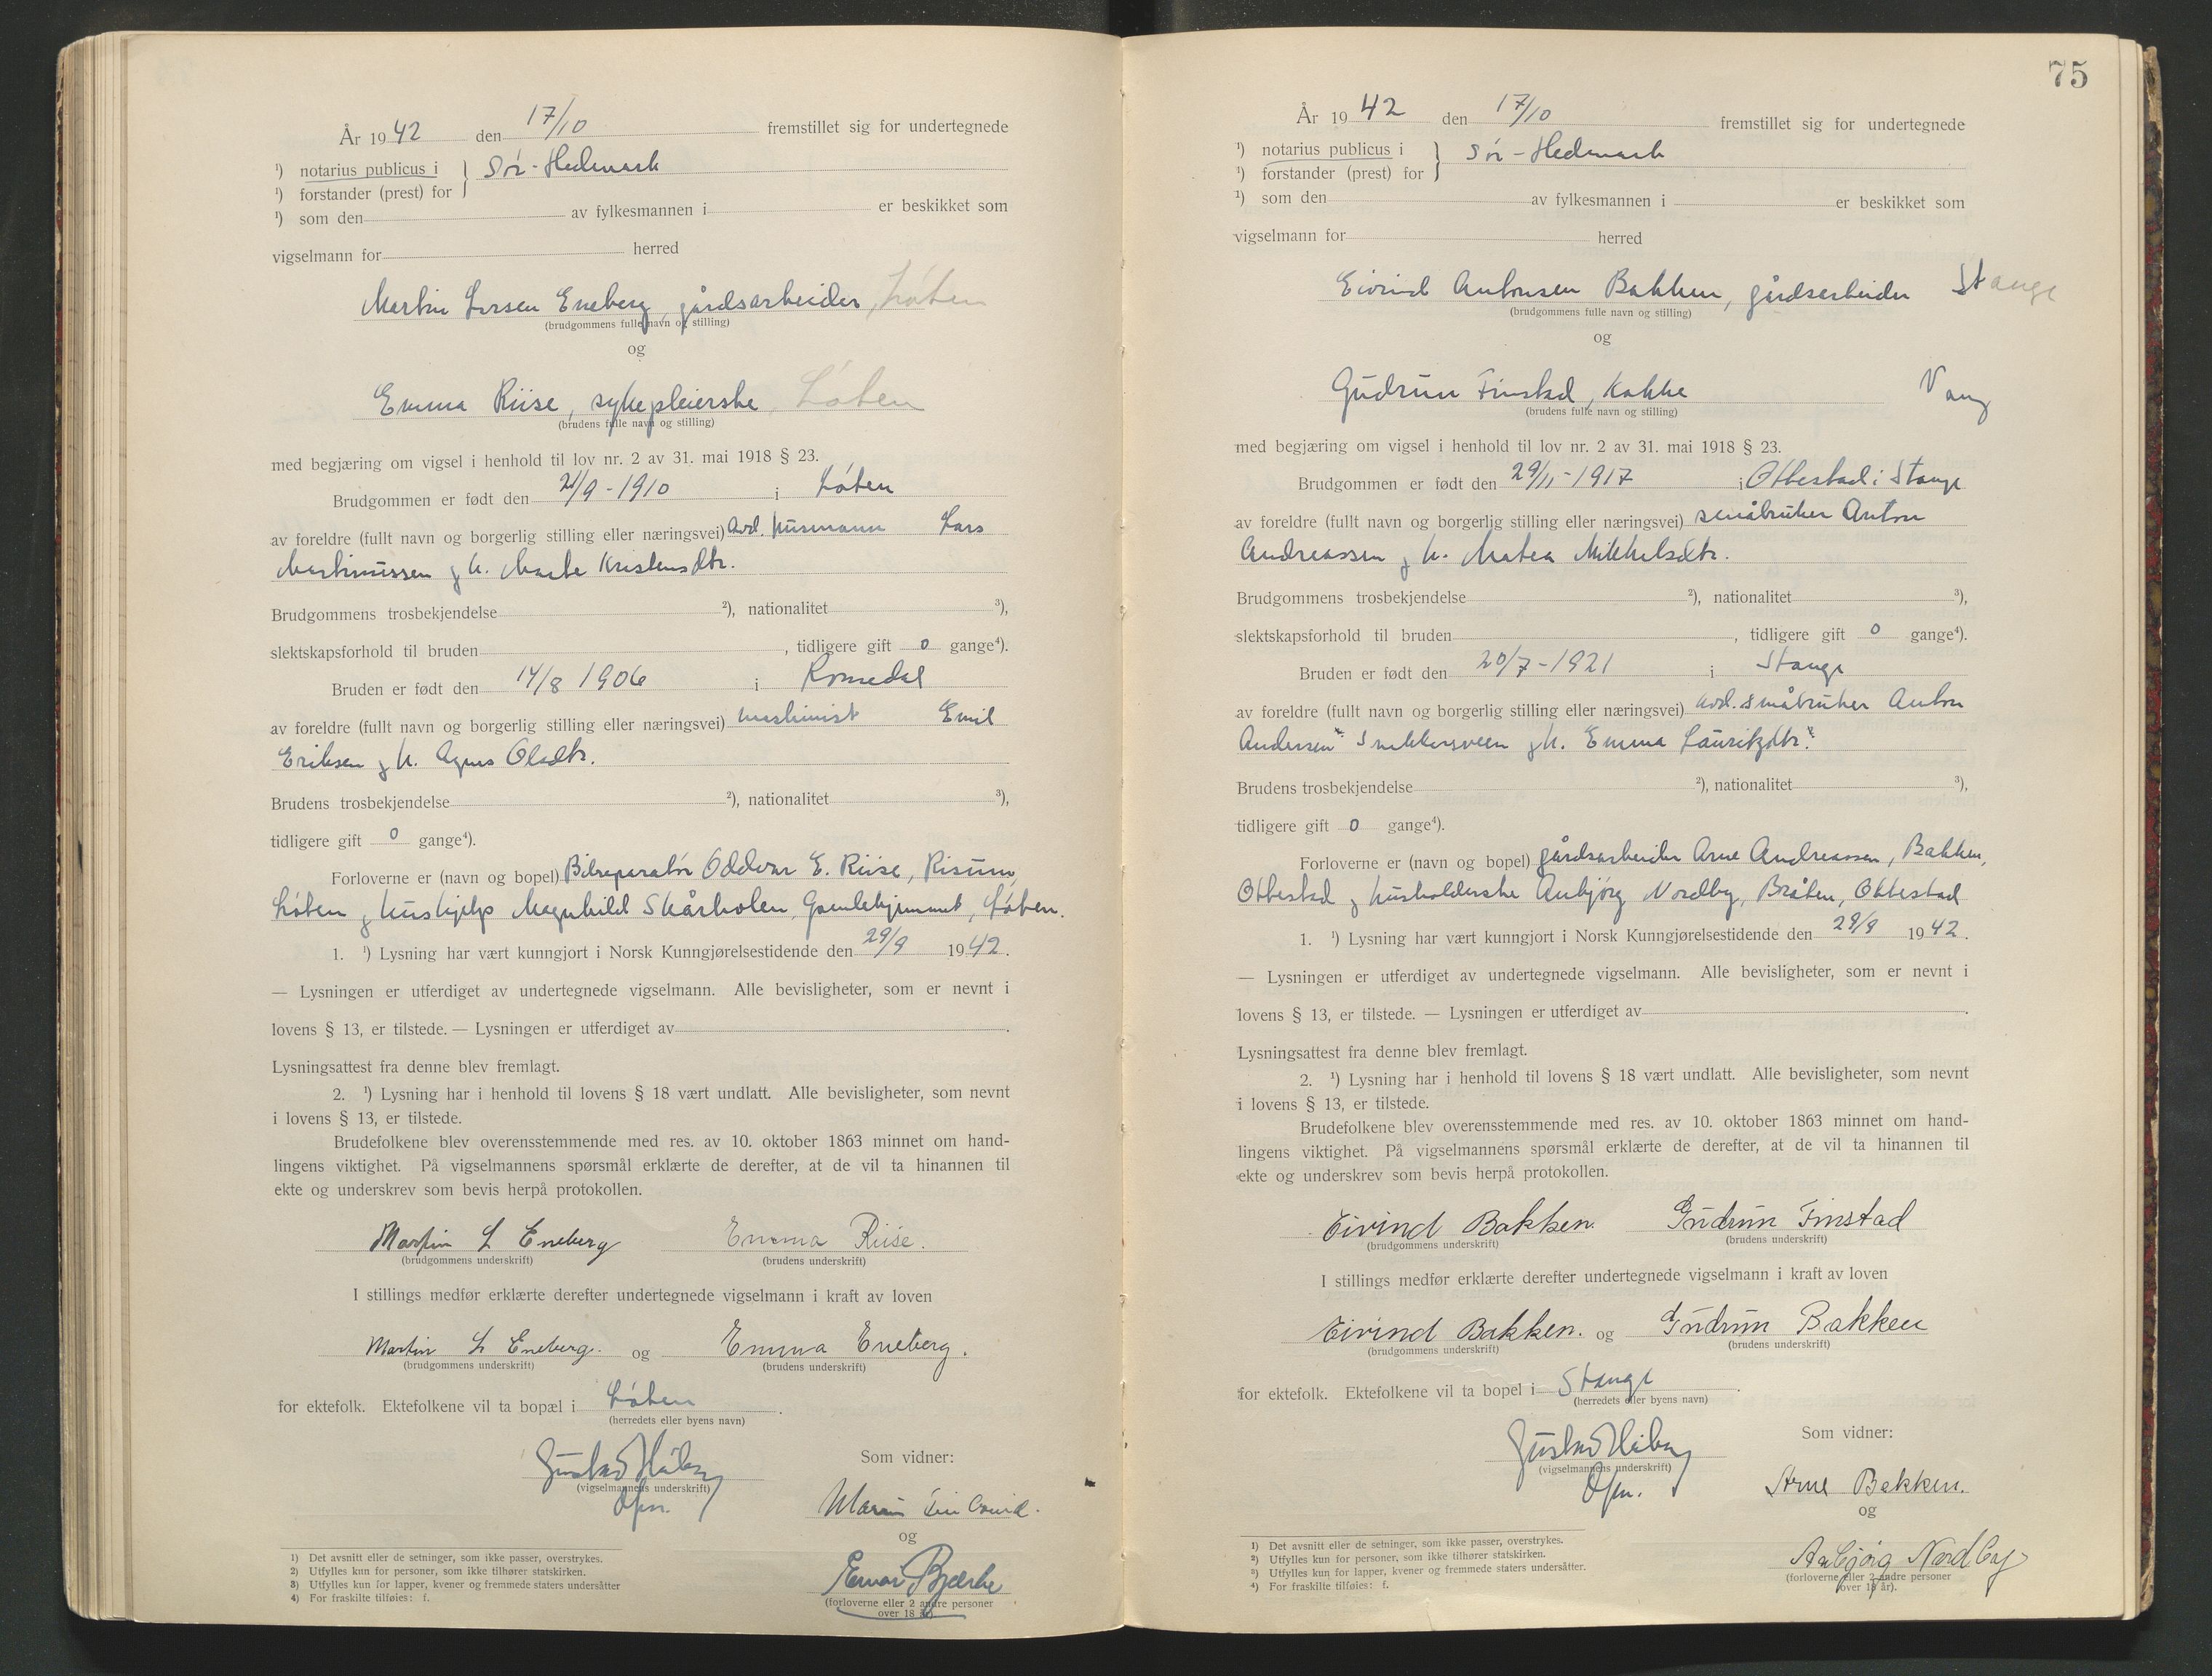 År 1942 den 17/10 fremstillet sig for undertegnede
¹) notarius publicus i } Sør-Hedmark
¹) forstander (prest) for
¹) som den av fylkesmannen i er beskikket som
vigselmann for herred
Martin Larsen Eneberg, gårdsarbeider, Løten
(brudgommens fulle navn og stilling)
og
Emma Riise, sykepleierske Løten
(brudens fulle navn og stilling)
med begjæring om vigsel i henhold til lov nr. 2 av 31. mai 1918 § 23.
Brudgommen er født den 21/9-1910 i Løten
av foreldre (fullt navn og borgerlig stilling eller næringsvei) avd. husmann Lars
Martinussen og h. Marte Kristensdtr.
Brudgommens trosbekjendelse ²), nationalitet ³),
slektskapsforhold til bruden , tidligere gift 0 gange⁴).
Bruden er født den 14/8 1906 i Romedal
av foreldre (fullt navn og borgerlig stilling eller næringsvei) maskinist Emil
Eriksen og h. Agnes Olsdtr.
Brudens trosbekjendelse ²), nationalitet ³),
tidligere gift 0 gange⁴).
Forloverne er (navn og bopel) Bilreparatør Oddvar E. Riise, Risum,
Løten og hushjelp Magnhild Skårholen, Gamlehjemmet, Løten.
1. ¹) Lysning har vært kunngjort i Norsk Kunngjørelsestidende den 29/9 1942.
— Lysningen er utferdiget av undertegnede vigselmann. Alle bevisligheter, som er nevnt i
lovens § 13, er tilstede. — Lysningen er utferdiget av .
Lysningsattest fra denne blev fremlagt.
2. ¹) Lysning har i henhold til lovens § 18 vært undlatt. Alle bevisligheter, som nevnt
i lovens § 13, er tilstede.
Brudefolkene blev overensstemmende med res. av 10. oktober 1863 minnet om hand-
lingens viktighet. På vigselmannens spørsmål erklærte de derefter, at de vil ta hinannen til
ekte og underskrev som bevis herpå protokollen.
Martin L Eneberg Emma Riise.
(brudgommens underskrift) (brudens underskrift)
I stillings medfør erklærte derefter undertegnede vigselmann i kraft av loven
Martin L Eneberg. og Emma Eneberg.
(brudgommens underskrift) (brudens underskrift)
for ektefolk. Ektefolkene vil ta bopæl i Løten .
(herredets eller byens navn)
Som vidner:
Gustav
(vigselmannens underskrift)
og
Einar Bjerke
(forloverne eller 2 andre personer
over 18 år)
1) Det avsnitt eller de setninger, som ikke passer, overstrykes.
2) Utfylles kun for personer, som ikke tilhører statskirken.
3) Utfylles kun for lapper, kvener og fremmede staters undersåtter
4) For fraskilte tilføies: f.
75
År 1942 den 17/10 fremstillet sig for undertegnede
¹) notarius publicus i } Sør-Hedmark
¹) forstander (prest) for
¹) som den av fylkesmannen i er beskikket som
vigselmann for herred
Eivind Antonsen Bakken, gårdsarbeider Stange
(brudgommens fulle navn og stilling)
og
Gudrun Finstad, kokke Vang
(brudens fulle navn og stilling)
med begjæring om vigsel i henhold til lov nr. 2 av 31. mai 1918 § 23.
Brudgommen er født den 29/11-1917 i Ottestad i Stange
av foreldre (fullt navn og borgerlig stilling eller næringsvei) småbruker Anton
Andreassen og h. Matea Mikkelsdtr.
Brudgommens trosbekjendelse ²), nationalitet ³),
slektskapsforhold til bruden , tidligere gift 0 gange⁴).
Bruden er født den 20/7-1921 i Stange
av foreldre (fullt navn og borgerlig stilling eller næringsvei) avd. småbruker Anton
Andersen Snekkersveen og h. Emma Lauritzdtr.
Brudens trosbekjendelse ²), nationalitet ³),
tidligere gift 0 gange⁴).
Forloverne er (navn og bopel) gårdsarbeider Arne Andreassen, Bakken,
Ottestad og husholderske Anbjørg Nordby, Bråten, Ottestad
1. ¹) Lysning har vært kunngjort i Norsk Kunngjørelsestidende den 29/9 1942.
— Lysningen er utferdiget av undertegnede vigselmann. Alle bevisligheter, som er nevnt i
lovens § 13, er tilstede. — Lysningen er utferdiget av .
Lysningsattest fra denne blev fremlagt.
2. ¹) Lysning har i henhold til lovens § 18 vært undlatt. Alle bevisligheter, som nevnt
i lovens § 13, er tilstede.
Brudefolkene blev overensstemmende med res. av 10. oktober 1863 minnet om hand-
lingens viktighet. På vigselmannens spørsmål erklærte de derefter, at de vil ta hinannen til
ekte og underskrev som bevis herpå protokollen.
Eivind Bakken. Gudrun Finstad
(brudgommens underskrift) (brudens underskrift)
I stillings medfør erklærte derefter undertegnede vigselmann i kraft av loven
Eivind Bakken. og Gudrun Bakken
(brudgommens underskrift) (brudens underskrift)
for ektefolk. Ektefolkene vil ta bopel i Stange .
(herredets eller byens navn)
Som vidner:
Gustav
(vigselmannens underskrift)
Arne Bakken.
og
Anbjørg Nordby
(forloverne eller 2 andre personer
over 18 år).
1) Det avsnitt eller de setninger, som ikke passer, overstrykes.
2) Utfylles kun for personer, som ikke tilhører statskirken.
3) Utfylles kun for lapper, kvener og fremmede staters undersåtter.
4) For fraskilte tilføies: f.